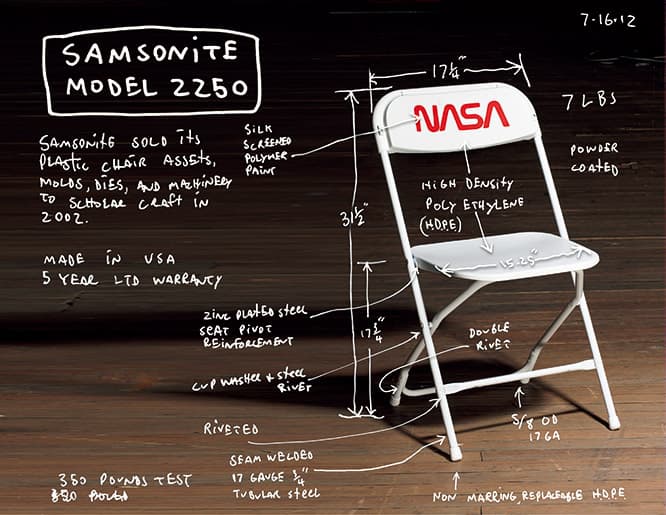 7-16-12
SAMSONITE
MODEL 2250
SAMSONITE SOLD ITS
PLASTIC CHAIR ASSETS,
MOLDS, DIES, AND MACHINERY
TO SCHOLAR CRAFT IN
2002.
MADE IN USA
5 YEAR LTD WARRANTY
SILK
SCREENED
POLYMER
PAINT
17 1/4"
NASA
7 LBS
POWDER
COATED
31 1/2"
HIGH DENSITY
POLY ETHYLENE
(H.D.P.E.)
15.25"
17 3/4"
ZINC PLATED STEEL
SEAT PIVOT
REINFORCEMENT
DOUBLE
RIVET
CUP WASHER & STEEL
RIVET
RIVETED
5/8 OD
17 GA
SEAM WELDED
17 GAUGE 3/4"
TUBULAR STEEL
NON MARRING, REPLACEABLE H.D.P.E.
350 POUNDS TEST